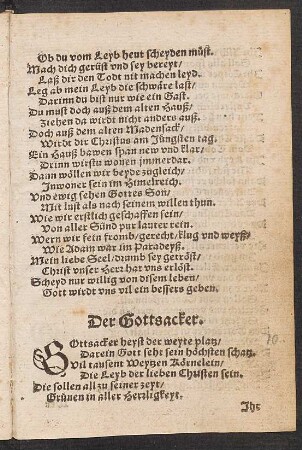 Ob du vom Leyb heut scheyden müst.
Mach dich gerüst vnd sey bereyt/
Laß dir den Todt nit machen leyd.
Leg ab mein Leyb die schwäre last/
Darinn du bist nur wie ein Gast.
Du must doch auß dem alten Hauß/
Ziehen da wirdt nicht anders auß.
Doch auß dem alten Madensack/
Wirdt dir Christus am Jüngsten tag.
Ein Hauß bawen span new vnd klar/
Drinn wirstu wonen jmmerdar.
Dann wöllen wir beyde zugleich/
Inwoner sein im Himelreich.
Vnd ewig sehen Gottes Son/
Mit lust als nach seinem willen thun.
Wie wir erstlich geschaffen sein/
Von aller Sünd pur lauter rein.
Wern wir sein fromb/gerecht/klug vnd weyß/
Wie Adam war im Paradeyß.
Mein liebe Seel/drumb sey getröst/
Christ vnser Herr hat vns erlöst.
Scheyd nur willig von disem leben/
Gott wirdt vns vil ein bessers geben.
Der Gottsacker.
GOttsacker heyst der weyte platz/
Darein Gott seht sein höchsten schatz.
Vil tausent Weytzen Körnelein/
Die Leyb der lieben Christen sein.
Die sollen all zu seiner zeyt/
Grünen in aller Herzligkeyt.
Ihr